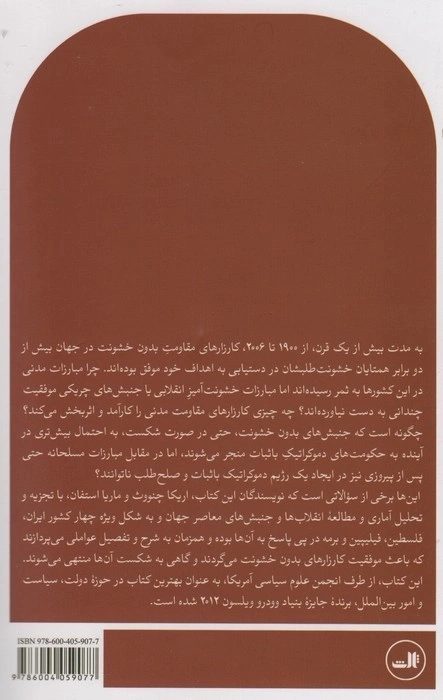 به مدت بیش از یک قرن، از ۱۹۰۰ تا ۲۰۰۶، کارزارهای مقاومتِ بدون خشونت در جهان بیش از
دو برابر همتایان خشونت‌طلبشان در دستیابی به اهداف خود موفق بوده‌اند. چرا مبارزات مدنی
در این کشورها به ثمر رسیده‌اند اما مبارزات خشونت‌آمیزِ انقلابی یا جنبش‌های چریکی موفقیت
چندانی به دست نیاورده‌اند؟ چه چیزی کارزارهای مقاومت مدنی را کارآمد و اثربخش می‌کند؟
چگونه است که جنبش‌های بدون خشونت، حتی در صورت شکست، به احتمال بیش‌تری در
آینده به حکومت‌های دموکراتیکِ باثبات منجر می‌شوند، اما در مقابل مبارزات مسلحانه حتی
پس از پیروزی نیز در ایجاد یک رژیم دموکراتیک باثبات و صلح‌طلب ناتوانند؟
این‌ها برخی از سؤالاتی است که نویسندگان این کتاب، اریکا چنووث و ماریا استفان، با تجزیه و
تحلیل آماری و مطالعهٔ انقلاب‌ها و جنبش‌های معاصر جهان و به شکل ویژه چهار کشور ایران،
فلسطین، فیلیپین و برمه در پی پاسخ به آن‌ها بوده و همزمان به شرح و تفصیل عواملی می‌پردازند
که باعث موفقیت کارزارهای بدون خشونت می‌گردند و گاهی به شکست آن‌ها منتهی می‌شوند.
این کتاب، از طرف انجمن علوم سیاسی آمریکا، به عنوان بهترین کتاب در حوزهٔ دولت، سیاست
و امور بین‌الملل، برندهٔ جایزهٔ بنیاد وودرو ویلسون ۲۰۱۲ شده است.
ISBN 978-600-405-907-7
9 786004 059077
ثالث